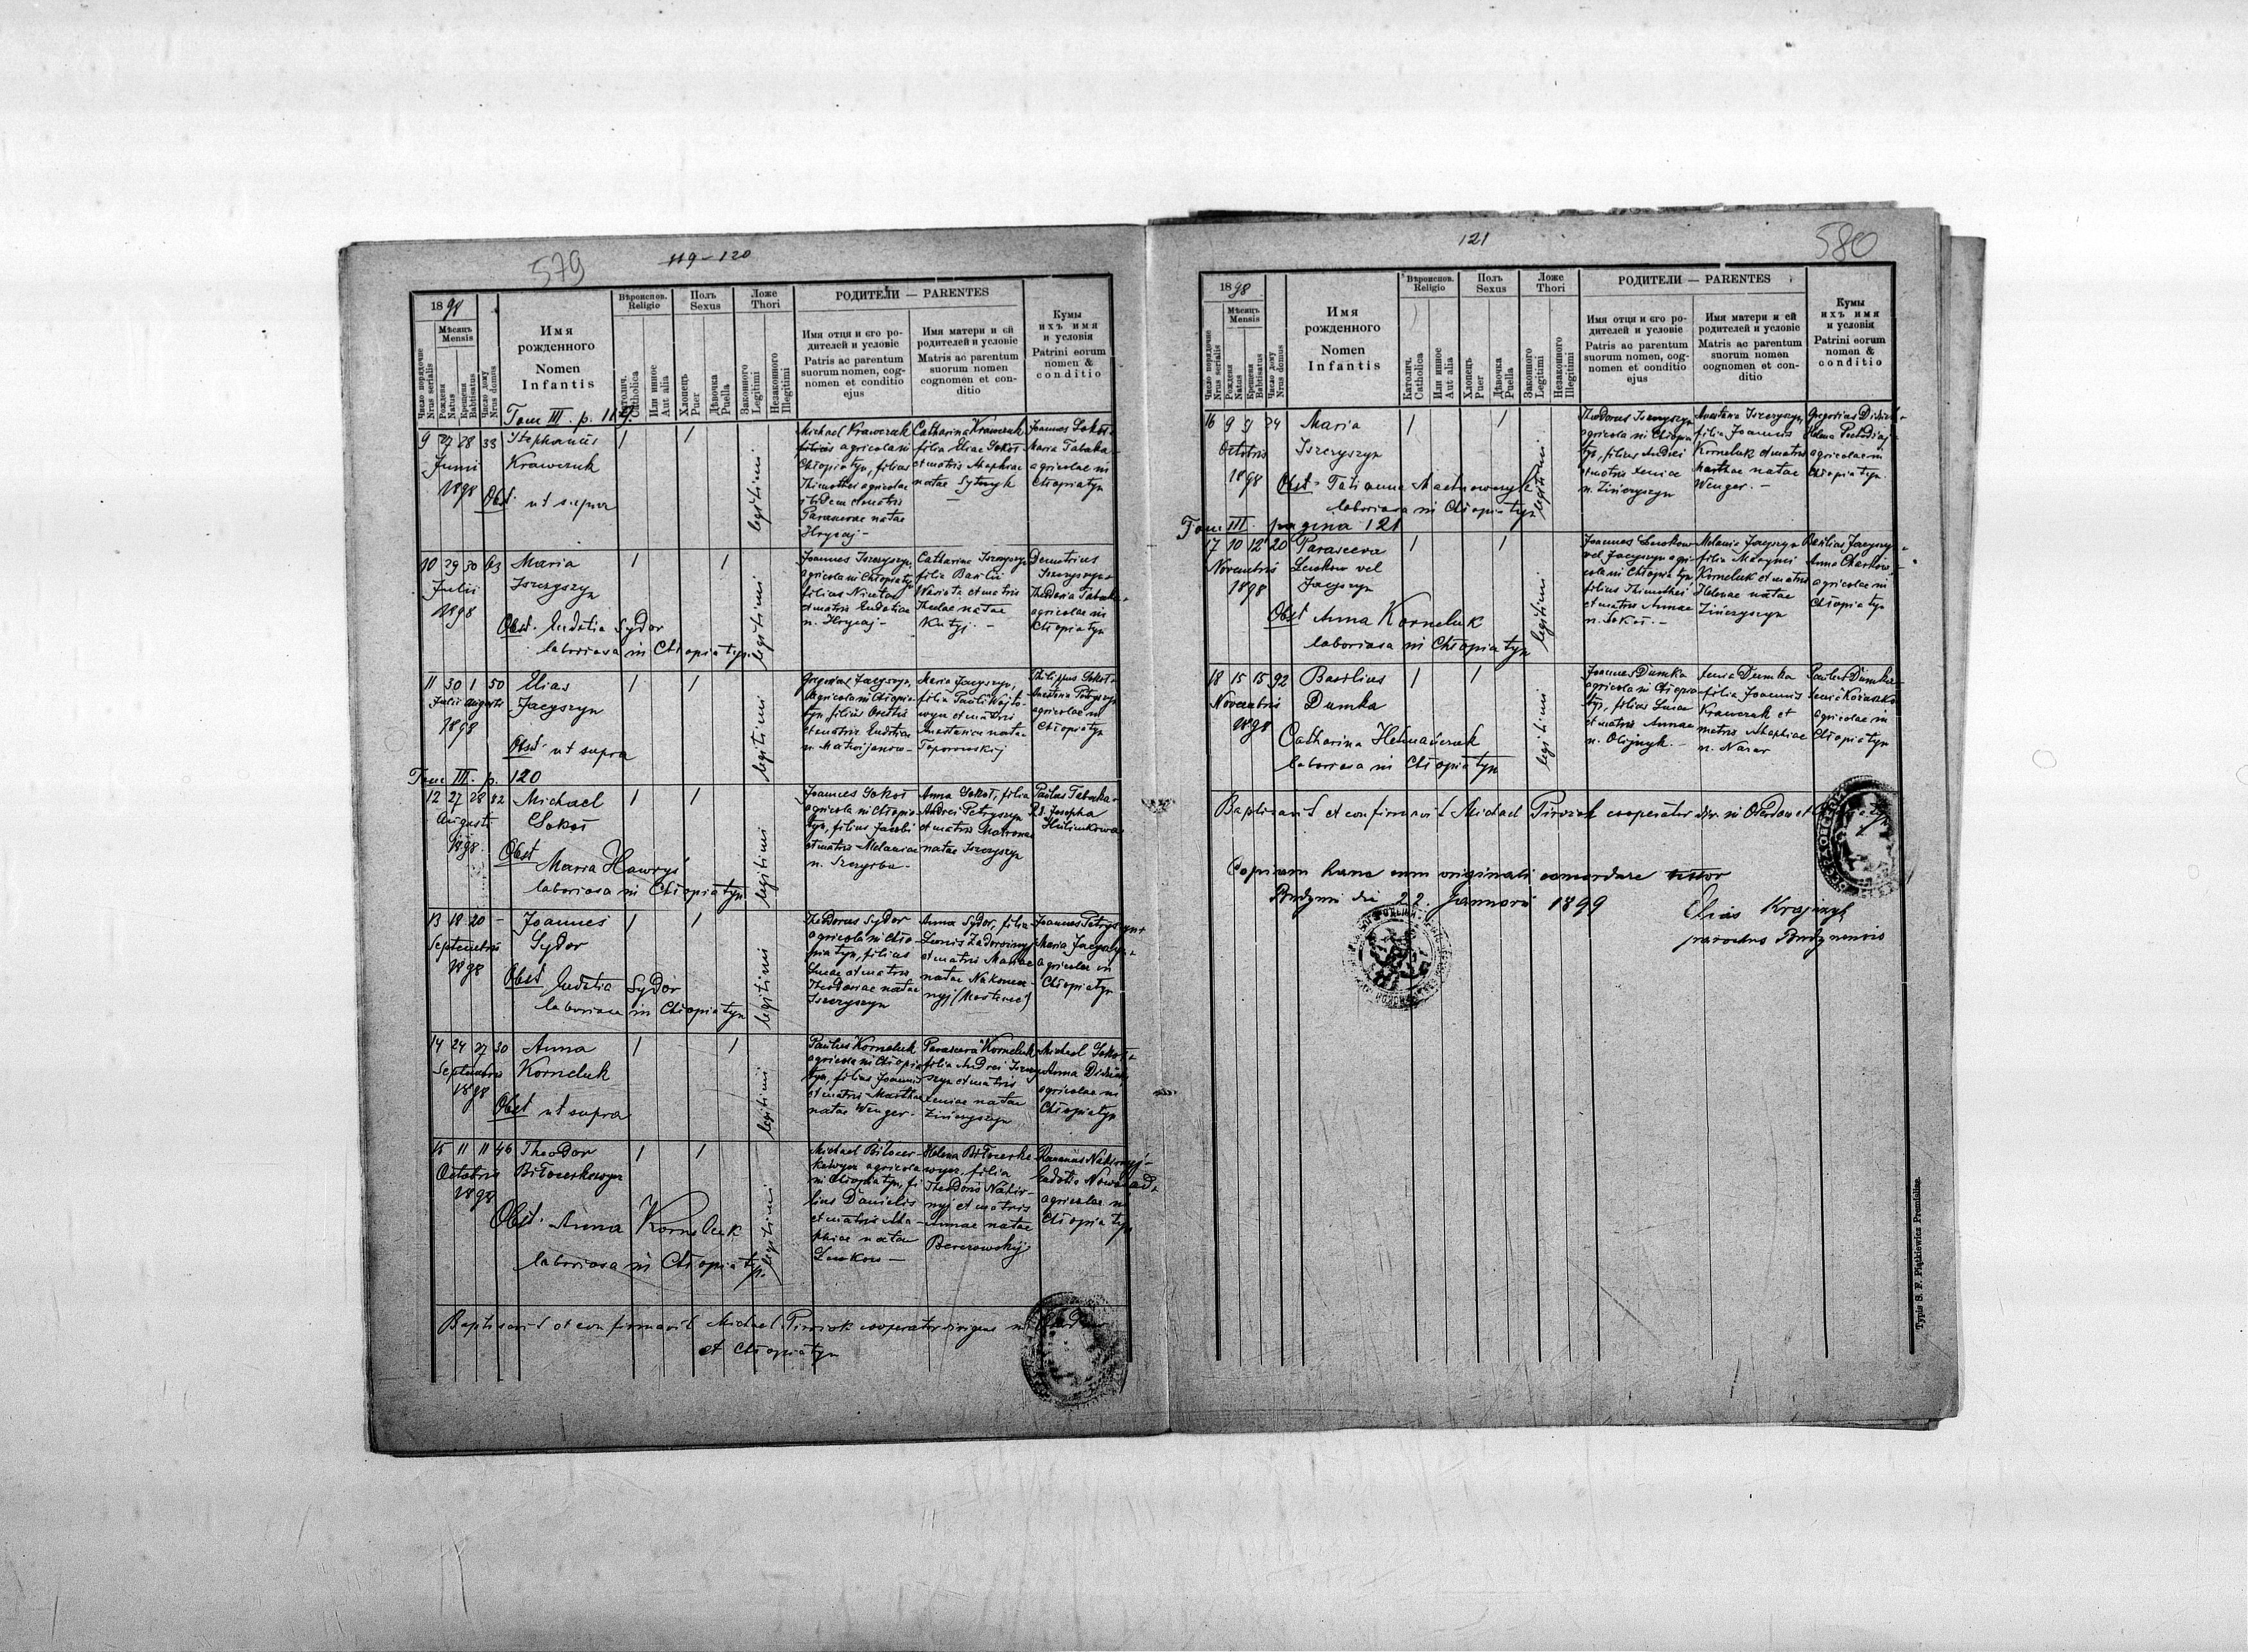 579
119 – 120
1898
Число порядочне
Nrus serialis
Мѣсяць
Mensis
Рождения
Natus
Крещения
Babtisatus
Число дому
Nrus domus
Имя
рожденного
Nomen
Infantis
Вѣроиспов.
Religio
Католич.
Catholica
Или инное
Aut alia
Полъ
Sexus
Хлопець
Puer
Дѣвочка
Puella
Ложе
Thori
Законного
Legitimi
Незаконного
Illegitimi
РОДИТЕЛИ — PARENTES
Имя отци и єго ро-
дителей и условіе
Patris ac parentum
suorum nomen, cog-
nomen et conditio
ejus
Имя матери и єй
родителей и условіе
Matris ac parentum
suorum nomen
cognomen et con-
ditio
Кумы
ихъ имя
и условія
Patrini eorum
nomen &
conditio
Tom III. p. 119.
9 27 28 33
Junii
1898
Stephanus
Krawczuk
Obst. ut supra
1 1
legitimi
Michael Krawczuk
filius agricola in
Chłopiatyn, filius
Thimothei agricolae
ibidem et matris
Parascevae natae
Hrycaj –
Catharina Krawczuk
filia Eliae Sokoł
et matris Ahaphiae
natae Sytnyk
–
Joannes Sokoł
Maria Tabaka
agricolae in
Chłopiatyn
10 29 30 63
Julii
1898
Maria
Iszczyszyn
Obst. Eudotia Sydor
laboriosa in Chłopiatyn.
1 1
legitimi
Joannes Iszczyszyn,
agricola in Chłopiatyn
filius Nicetae
et matris Eudotiae
n. Hrycaj –
Catharina Iszczyszyn
filia Basilii
Wariota et matris
Theclae natae
Kutyj. –
Demetrius
Iszczyszyn
Theodosia Tabaka
agricolae in
Chłopiatyn
11 30 1 50
Julii Augusti
1898
Elias
Jacyszyn
Obst. ut supra
1 1
legitimi
Gregorius Jacyszyn,
Agricola in Chłopia-
tyn, filius Onethii
et matris Eudotiae
n. Matwijanow –
Maria Jacyszyn,
filia Pauli Wojto-
wycz et matris
Anastasiae natae
Toporowskyj
Philippus Sokoł
Anastasia Petryszyn
agricolae in
Chłopiatyn
Tom III. p. 120
12 27 28 82
Augusti
1898
Michael
Sokoł
Obst
Maria Hawryś
laboriosa in Chłopiatyn
1 1
legitimi
Joannes Sokoł
agricola in Chłopia-
tyn, filius Jacobi
et matris Melaniae
n. Szczyrba –
Anna Sokoł, filia
Andrei Petryszyn
et matris Matronae
natae Iszczyszyn
Paulus Tabaka
Rd. Josepha
Hulimkowa
13 18 20 –
Septembris
1898
Joannes
Sydor
Obst Eudotia Sydor
laboriosa in Chłopiatyn
1 1
legitimi
Theodorus Sydor
agricola in Chło-
piatyn, filius
Lucae et matris
Theodosiae natae
Iszczyszyn
Anna Sydor, filia
Leonis Zadorożnyj
et matris Mariae
natae Nakonecz-
nyj
Joannes Petryszyn
Maria Jacyszyn
agricolae in
Chłopiatyn
14 24 27 30
Septembris
1898
Anna
Korneluk
Obst ut supra
1 1
legitimi
Paulus Korneluk
agricola in Chłopia-
tyn, filius Joannis
et matris Marthae
natae Wenger.
Parasceva Korneluk
filia Andrei Iszczy-
szyn et matris
Xeniae natae
Zińczyszyn
Michael Sokoł
Anna Didiuk
agricolae in
Chłopiatyn
15 11 11 46
Octobris
1898
Theodor
Biłoczerkowycz
Obst. Anna Korneluk
laboriosa in Chłopiatyn.
1 1
legitimi
Michael Biłoczer-
kowycz agricola
in Chłopiatyn, fi-
lius Danielis
et matris Aha-
phiae natae
Lewkow –
Helena Biłoczerko-
wycz, filia
Theodori Nahir-
nyj et matris
Annae natae
Berezowskyj
Nahirnyj
Eudotia Nowosad
agricolae in
Chłopiatyn
Baptisavit et confirmavit Michael Pirożok cooperator dirigens in
et Chłopiatyn
121
580
1898
Число порядочне
Nrus serialis
Мѣсяць
Mensis
Рождения
Natus
Крещения
Babtisatus
Число дому
Nrus domus
Имя
рожденного
Nomen
Infantis
Вѣроиспов.
Religio
Католич.
Catholica
Или инное
Aut alia
Полъ
Sexus
Хлопець
Puer
Дѣвочка
Puella
Ложе
Thori
Законного
Legitimi
Незаконного
Illegitimi
РОДИТЕЛИ — PARENTES
Имя отци и єго ро-
дителей и условіе
Patris ac parentum
suorum nomen, cog-
nomen et conditio
ejus
Имя матери и єй
родителей и условіе
Matris ac parentum
suorum nomen
cognomen et con-
ditio
Кумы
ихъ имя
и условія
Patrini eorum
nomen &
conditio
16 9 9 24
Octobris
1898
Maria
Iszczyszyn
Obst. Tatianna
laboriosa in Chłopiatyn
1 1
legitimi
Theodorus Iszczyszyn
agricola in Chłopia-
tyn, filius Andrei
et matris Xeniae
n. Zińczyszyn
Anastasia Iszczyszyn,
filia Joannis
Korneluk et matris
Marthae natae
Wenger. –
Gregorius Didiuk
Helena
agricolae in
Chłopiatyn.
Tom III. pagina 121
17 10 12 20
Novembris
1898
Parasceva
Lewkow vel
Jacyszyn
Obst Anna Korneluk
laboriosa in Chłopiatyn
1 1
legitimi
Joannes Lewkow
vel Jacyszyn agri-
cola in Chłopiatyn,
filius Thimothei
et matris Annae
n. Sokoł. –
Melania Jacyszyn
filia Maxymi
Korneluk et matris
Helenae natae
Zińczyszyn
Basilius Jacyszyn
Anna Charkow
agricolae in
Chłopiatyn
18 15 15 92
Novembris
1898
Basilius
Dumka
Catharina Hetmańczuk
laboriosa in Chłopiatyn
1 1
legitimi
Joannes Dumka
agricola in Chłopia-
tyn, filius Lucae
et matris Annae
n. Olijnyk. –
Xenia Dumka
filia Joannis
Krawczuk et
matris Ahaphiae
n. Nazar
Paulus Dumka
Xenia
agricolae in
Chłopiatyn
Baptisavit et confirmavit Michael Pirożok cooperator dir. in Ośerdow et
Copiam hanc cum originali concordare testor
Budynin die 22. Januarii 1899
Elias Krajczyk
parochus Budynensis
Typis S. F. Piątkiewicz Premisliae.